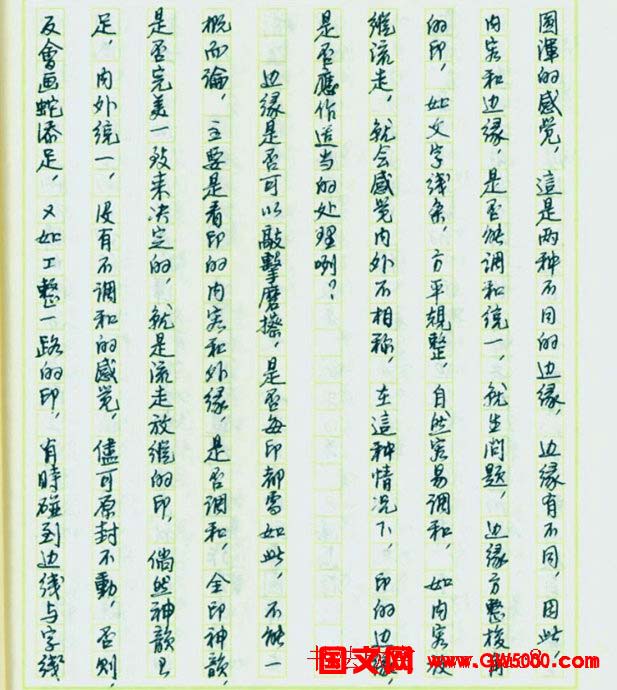 圆浑的感觉，這是两种不同的边缘，边缘有不同，因此，
内容和边缘，是否能调和统一，就生问题，边缘方整梭角
的印，如文字线条，方平規整，自然容易调和，如内容放
縱流走，就会感觉内外不相称，在這种情况下，印的边缘，
是否應作适当的处理咧？
边缘是否可以敲擊磨擦，是否每印都需如此，不能一
概而論，主要是看印的内容和外缘，是否调和，全印神韻，
是否完美一致来决定的，就是流走放縱的印，倘然神韻已
足，内外统一，没有不调和的感觉，儘可原封不動，否則，
反會画蛇添足，又如工整一路的印，有時碰到边线与字线
国文网
www.GW5000.com